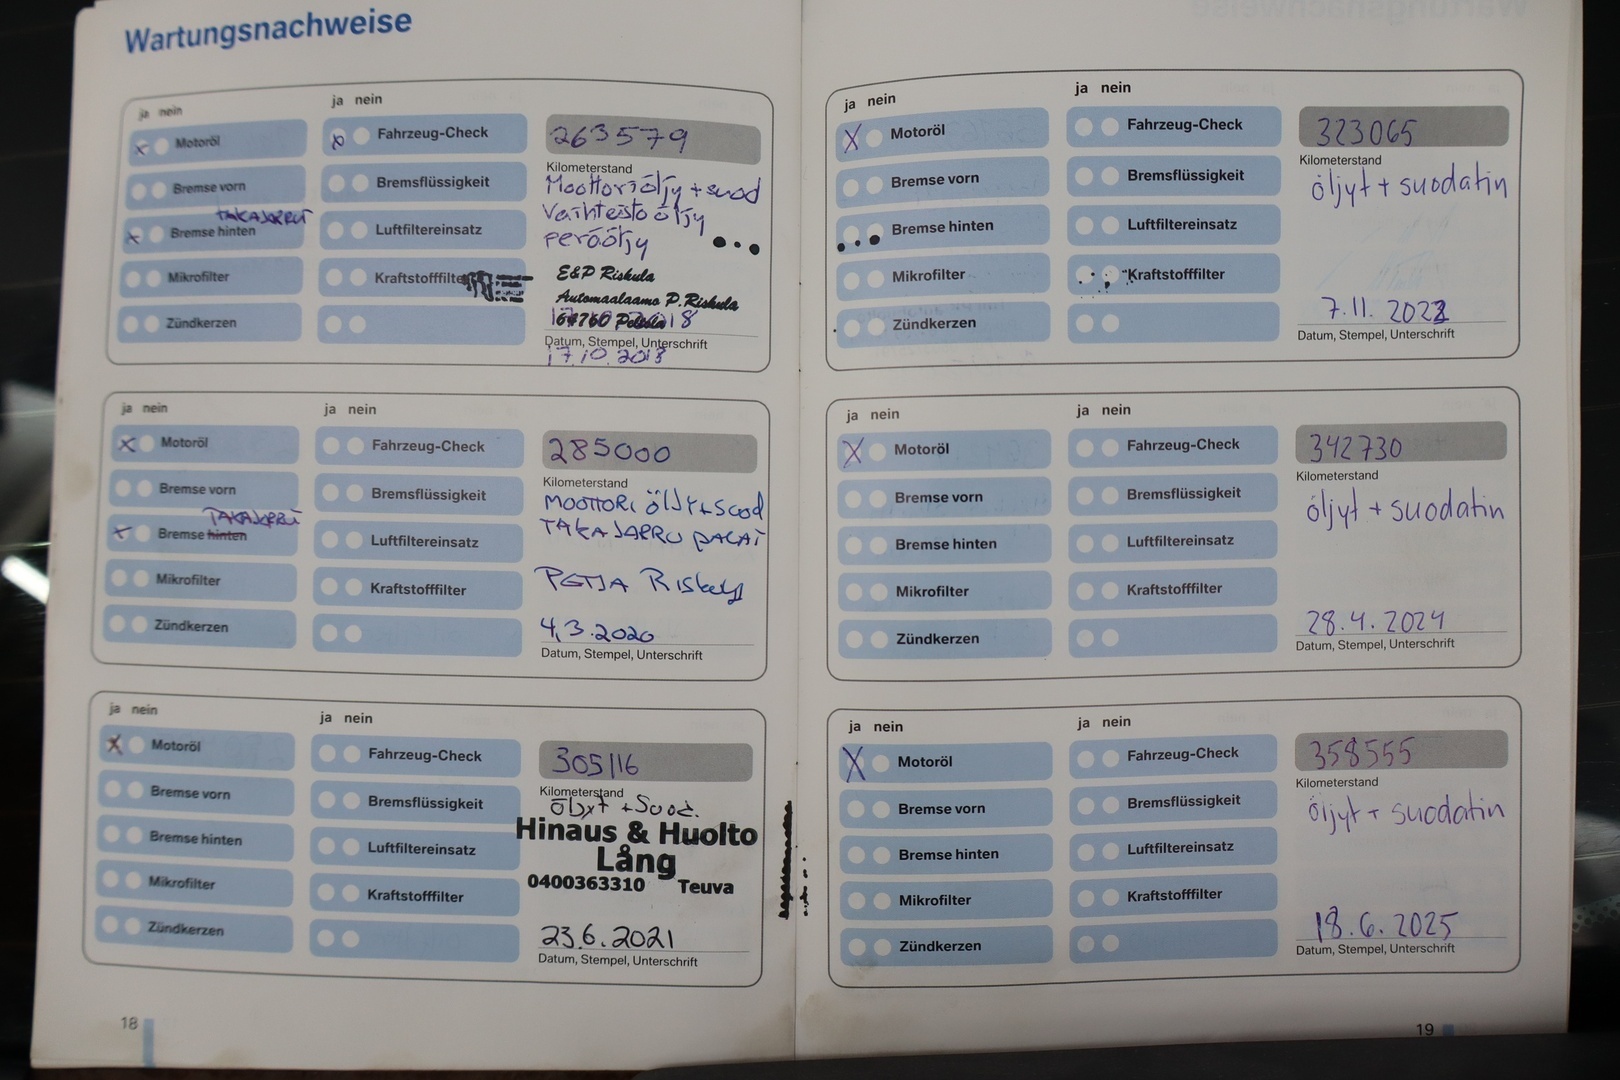 Wartungsnachweise
ja nein
ja nein
Motoröl
Fahrzeug-Check
263579
Kilometerstand
Bremse vorn
Bremsflüssigkeit
Moottoriöljy + suod
Vaihteistoöljy
TAKAJARRU
Bremse hinten
Luftfiltereinsatz
peräöljy
Mikrofilter
Kraftstofffilter
E&P Riskula
Automaalaamo P.Riskula
Zündkerzen
64760 Peltola
Datum, Stempel, Unterschrift
17.10.2018
ja nein
ja nein
Motoröl
Fahrzeug-Check
285000
Kilometerstand
Bremse vorn
Bremsflüssigkeit
MOOTTORI ÖLJY+SUOD
TAKAJARRU
Bremse hinten
Luftfiltereinsatz
TAKAJARRU PALAT
Mikrofilter
Kraftstofffilter
Zündkerzen
4.3.2020
Datum, Stempel, Unterschrift
ja nein
ja nein
Motoröl
Fahrzeug-Check
305116
Kilometerstand
Bremse vorn
Bremsflüssigkeit
Öljyt + Suod.
Hinaus & Huolto
Bremse hinten
Luftfiltereinsatz
Lång
0400363310 Teuva
Mikrofilter
Kraftstofffilter
Zündkerzen
23.6.2021
Datum, Stempel, Unterschrift
18
ja nein
ja nein
Motoröl
Fahrzeug-Check
323065
Kilometerstand
Bremse vorn
Bremsflüssigkeit
öljyt + suodatin
Bremse hinten
Luftfiltereinsatz
Mikrofilter
Kraftstofffilter
Zündkerzen
7.11.
Datum, Stempel, Unterschrift
ja nein
ja nein
Motoröl
Fahrzeug-Check
342730
Kilometerstand
Bremse vorn
Bremsflüssigkeit
öljyt + suodatin
Bremse hinten
Luftfiltereinsatz
Mikrofilter
Kraftstofffilter
Zündkerzen
28.4.2024
Datum, Stempel, Unterschrift
ja nein
ja nein
Motoröl
Fahrzeug-Check
358555
Kilometerstand
Bremse vorn
Bremsflüssigkeit
öljyt + suodatin
Bremse hinten
Luftfiltereinsatz
Mikrofilter
Kraftstofffilter
Zündkerzen
18.6.2025
Datum, Stempel, Unterschrift
19